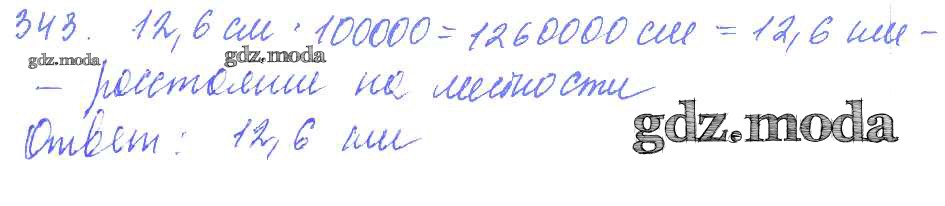 343. 12,6 см · 100000 = 1260000 см = 12,6 км –
gdz.moda gdz.moda
– расстояние на местности
Ответ: 12,6 км
gdz.moda